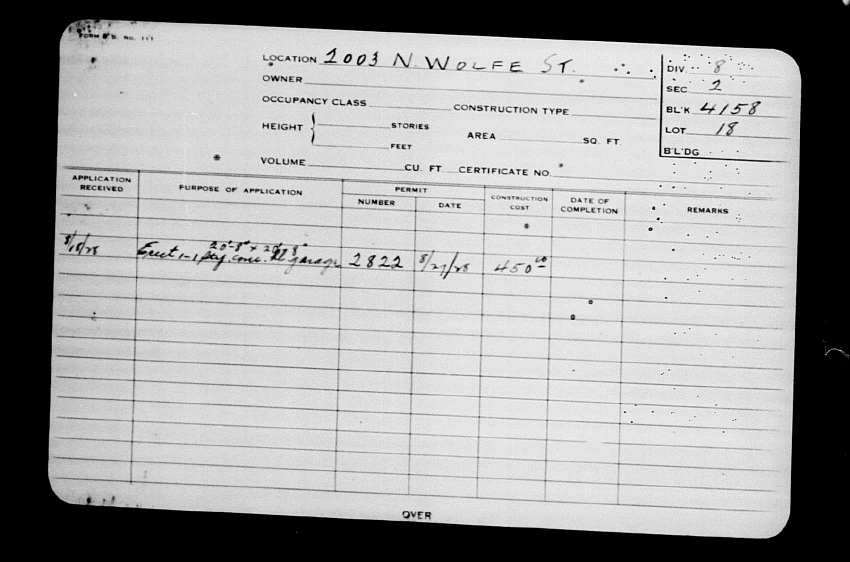 FORM B.B. No. 111
LOCATION 2003 N. WOLFE ST.
OWNER
OCCUPANCY CLASS CONSTRUCTION TYPE
HEIGHT { STORIES AREA SQ. FT.
FEET
VOLUME CU. FT. CERTIFICATE NO.
DIV. 8
SEC 2
BL'K 4158
LOT 18
B'L'DG
APPLICATION RECEIVED PURPOSE OF APPLICATION PERMIT NUMBER DATE CONSTRUCTION COST DATE OF COMPLETION REMARKS
20'-8" x 20'-8"
8/18/28 Erect 1-1 sty. conc. bl. garage 2822 8/27/28 450 00
OVER